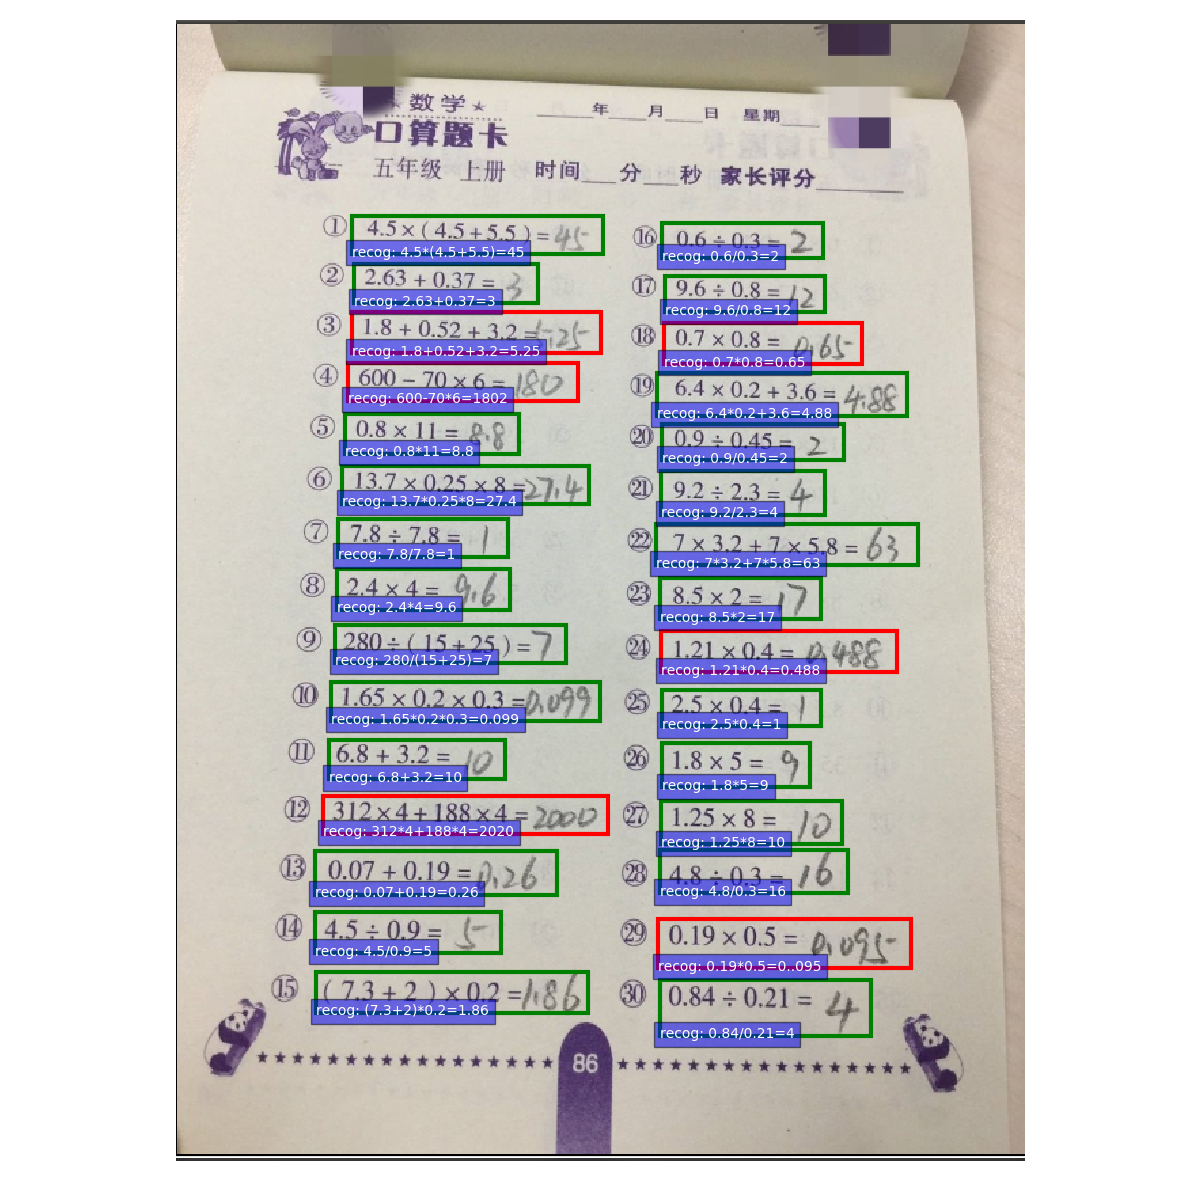 ★数学★
口算题卡
____年____月____日 星期____
五年级 上册 时间___分___秒 家长评分________
① 4.5×(4.5+5.5)=45
recog: 4.5*(4.5+5.5)=45
② 2.63+0.37=3
recog: 2.63+0.37=3
③ 1.8+0.52+3.2=5.25
recog: 1.8+0.52+3.2=5.25
④ 600-70×6=180
recog: 600-70*6=1802
⑤ 0.8×11=8.8
recog: 0.8*11=8.8
⑥ 13.7×0.25×8=27.4
recog: 13.7*0.25*8=27.4
⑦ 7.8÷7.8=1
recog: 7.8/7.8=1
⑧ 2.4×4=9.6
recog: 2.4*4=9.6
⑨ 280÷(15+25)=7
recog: 280/(15+25)=7
⑩ 1.65×0.2×0.3=0.099
recog: 1.65*0.2*0.3=0.099
⑪ 6.8+3.2=10
recog: 6.8+3.2=10
⑫ 312×4+188×4=2000
recog: 312*4+188*4=2020
⑬ 0.07+0.19=0.26
recog: 0.07+0.19=0.26
⑭ 4.5÷0.9=5
recog: 4.5/0.9=5
⑮ (7.3+2)×0.2=1.86
recog: (7.3+2)*0.2=1.86
⑯ 0.6÷0.3=2
recog: 0.6/0.3=2
⑰ 9.6÷0.8=12
recog: 9.6/0.8=12
⑱ 0.7×0.8=0.65
recog: 0.7*0.8=0.65
⑲ 6.4×0.2+3.6=4.88
recog: 6.4*0.2+3.6=4.88
⑳ 0.9÷0.45=2
recog: 0.9/0.45=2
㉑ 9.2÷2.3=4
recog: 9.2/2.3=4
㉒ 7×3.2+7×5.8=63
recog: 7*3.2+7*5.8=63
㉓ 8.5×2=17
recog: 8.5*2=17
㉔ 1.21×0.4=0.488
recog: 1.21*0.4=0.488
㉕ 2.5×0.4=1
recog: 2.5*0.4=1
㉖ 1.8×5=9
recog: 1.8*5=9
㉗ 1.25×8=10
recog: 1.25*8=10
㉘ 4.8÷0.3=16
recog: 4.8/0.3=16
㉙ 0.19×0.5=0.095
recog: 0.19*0.5=0..095
㉚ 0.84÷0.21=4
recog: 0.84/0.21=4
86